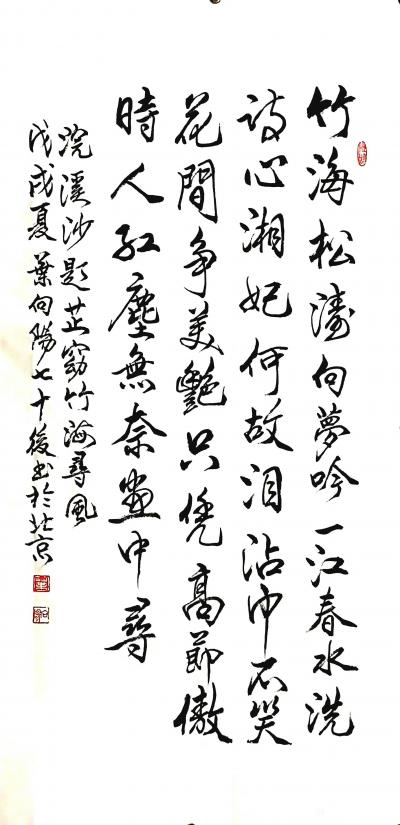 竹海松濤向夢吟一江春水洗
詩心湘妃何故泪沾巾不笑
花間争美艷只凭高節傲
時人紅塵無奈画中尋
浣溪沙題芷窈竹海尋風
戊戌夏葉向陽七十後书於北京